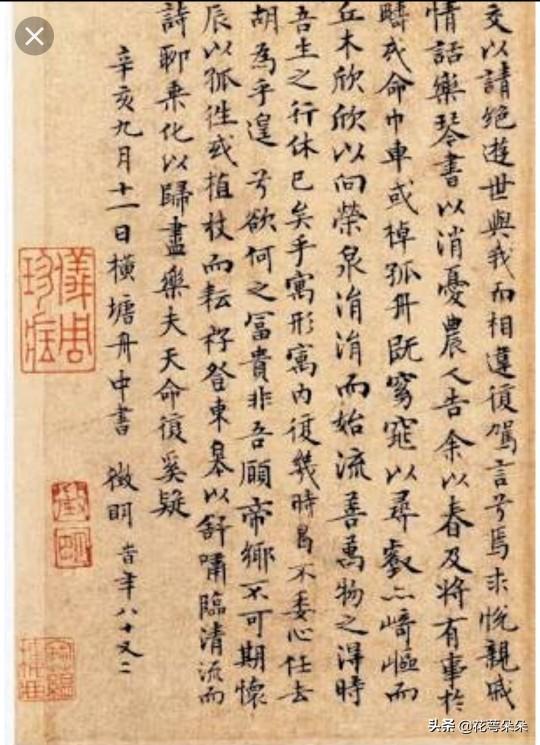 交以請絕遊世與我而相違復駕言兮焉求悅親戚
情話樂琴書以消憂農人告余以春及將有事於
疇或命巾車或棹孤舟既窈窕以尋壑亦崎嶇而
丘木欣欣以向榮泉涓涓而始流善萬物之得時
吾生之行休已矣乎寓形寓內復幾時曷不委心任去
胡為乎遑兮欲何之富貴非吾願帝鄉不可期懷
辰以孤徃或植杖而耘耔登東皋以舒嘯臨清流而
詩聊乘化以歸盡樂夫天命復奚疑
辛亥九月十一日橫塘舟中書 徵明 時年八十又二
儀周珍藏
徵明
头条 @花萼朵朵